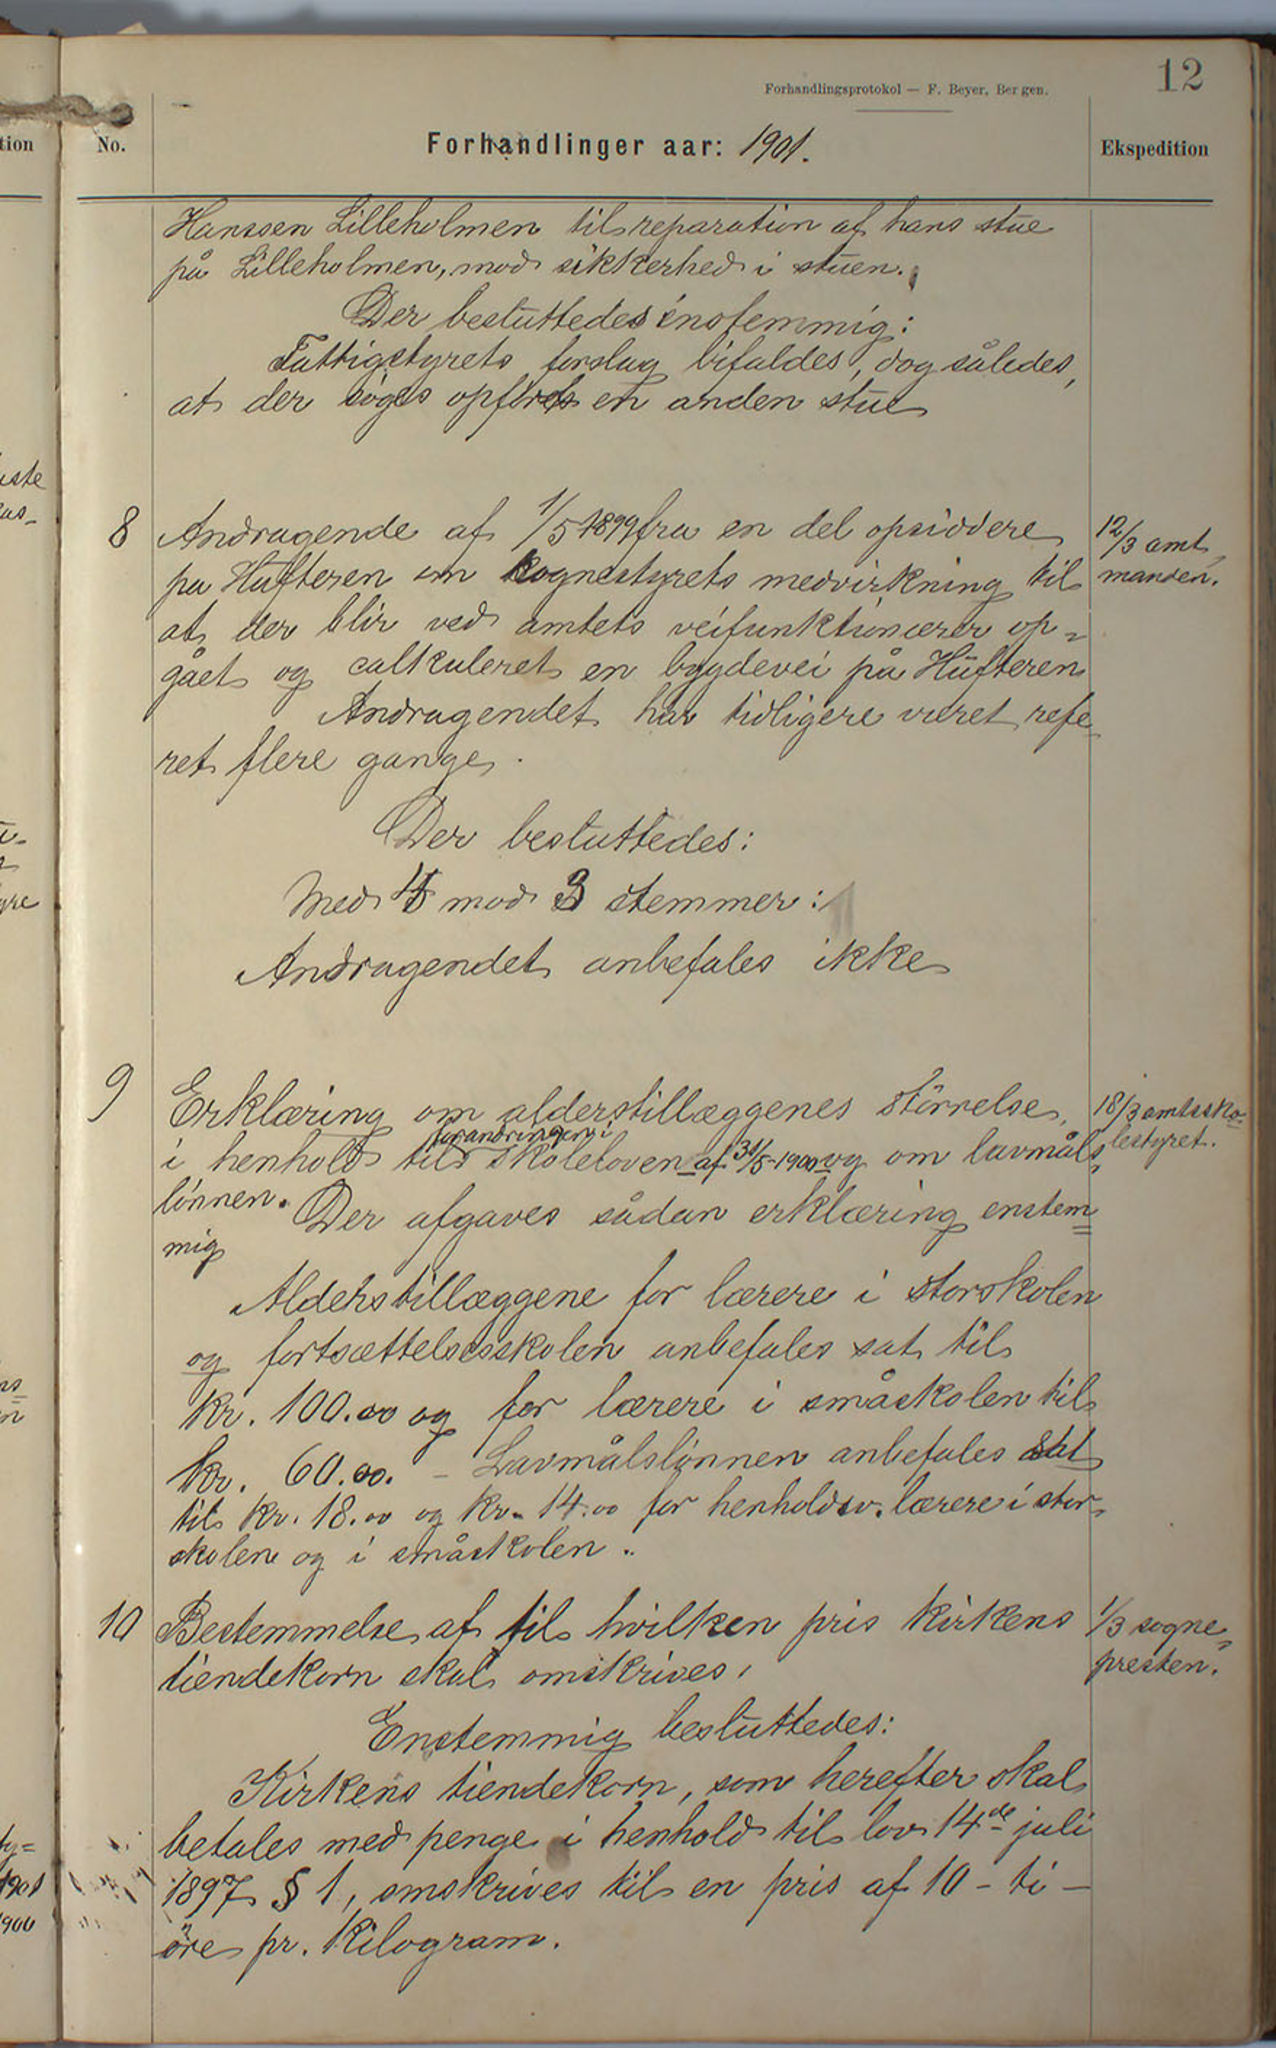 12
Forhandlingsprotokol — F. Beyer, Bergen.
No.
Forhandlinger aar: 1901.
Ekspedition
Hanssen Lilleholmen til reparation af hans stue
på Lilleholmen, mod sikkerhed i stuen.
Der besluttedes enstemmig:
Fattigstyrets forslag bifaldes, dog således,
at der søges opført en anden stue
8 Andragende af 1/5 1899 fra en del opsiddere
pa Hufteren om sognestyrets medvirkning til
at der blir ved amtets veifunktionærer op=
gået og calkuleret en bygdevei på Hufteren
Andragendet har tidligere været refe
ret flere gange.
12/3 amt
manden.
Der besluttedes:
Med 4 mod 3 stemmer:
Andragendet anbefales ikke
9 Erklæring om alderstillæggenes størrelse,
forandringen i
i henhold til skoleloven af 31/5-1900 og om lavmåls
lønnen. Der afgaves sådan erklæring enstem=
mig
18/3 amtssko=
lestyret.
Alderstillæggene for lærere i storskolen
og fortsættelsesskolen anbefales sat til
kr. 100.00 og for lærere i småskolen til
kr. 60.00. - Lavmålslønnen anbefales sat
til kr. 18.00 og kr. 14.00 for henholdsv. lærere i stor
skolen og i småskolen.
10 Bestemmelse af til hvilken pris kirkens
tiendekorn skal omskrives,
1/3 sogne=
presten.
Enstemmig besluttedes:
Kirkens tiendekorn, som herefter skal
betales med penge i henhold til lov 14de juli
1897 § 1, omskrives til en pris af 10 - ti -
øre pr. kilogram.